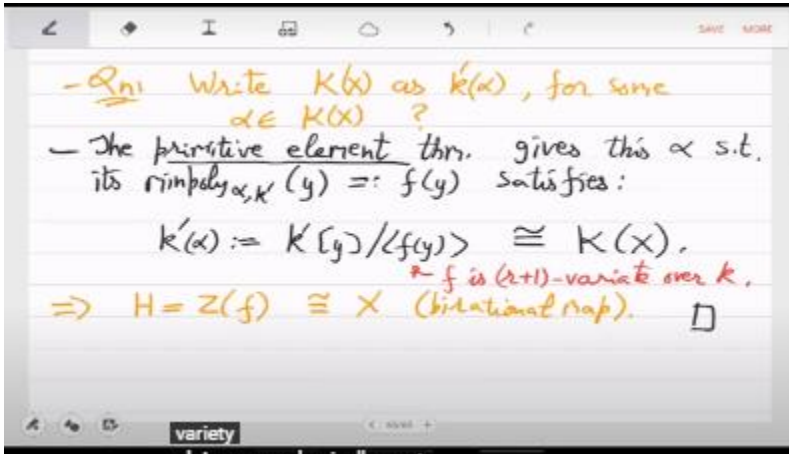 SAVE MORE
- Qn: Write K(X) as k'(α), for some
α ∈ K(X) ?
- The primitive element thm. gives this α s.t.
its minpoly_{α,k'} (y) =: f(y) satisfies:
k'(α) := k'[y]/<f(y)> ≅ K(X).
f is (r+1)-variate over k.
=> H = Z(f) ≅ X (birational map). □
variety